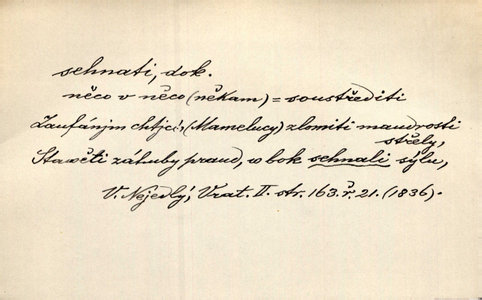 sehnati, dok.
něco v něco (někam) = soustřediti
Zaufánjm chtjc, (Mamelucy) zlomiti maudrosti
střely,
Stawěti zátuby praud, w bok sehnali sylu,
V. Nejedlý, Vrat. II. str. 163. ř. 21. (1836).